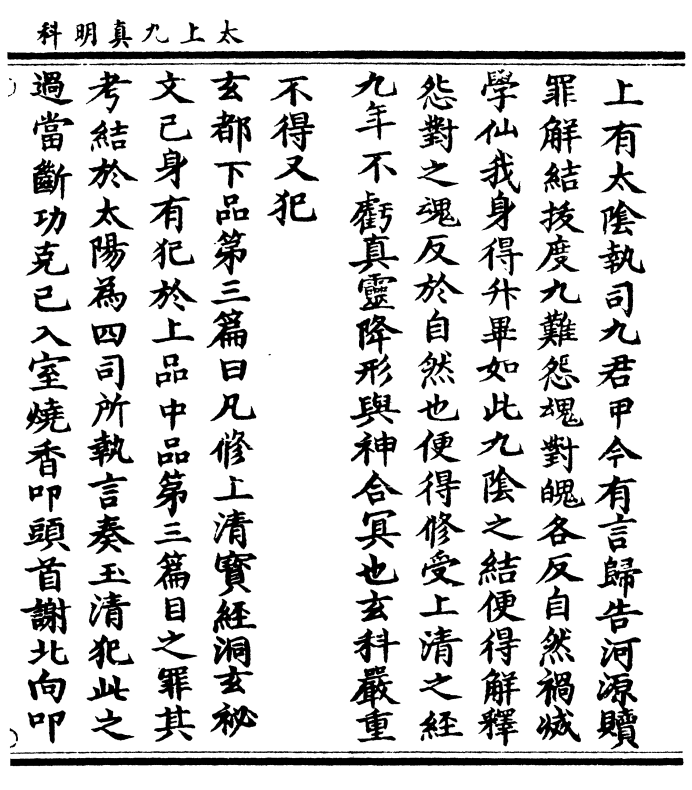 太上九真明科
上有太陰執司九君甲今有言歸告河源贖
罪解結拔度九難怨魂對魄各反自然禍滅
學仙我身得升畢如此九陰之結便得解釋
怨對之魂反於自然也便得修受上清之經
九年不虧真靈降形與神合冥也玄科嚴重
不得又犯
玄都下品第三篇曰凡修上清寶經洞玄祕
文己身有犯於上品中品第三篇目之罪其
考結於太陽為四司所執言奏玉清犯此之
過當斷功克己入室燒香叩頭首謝北向叩